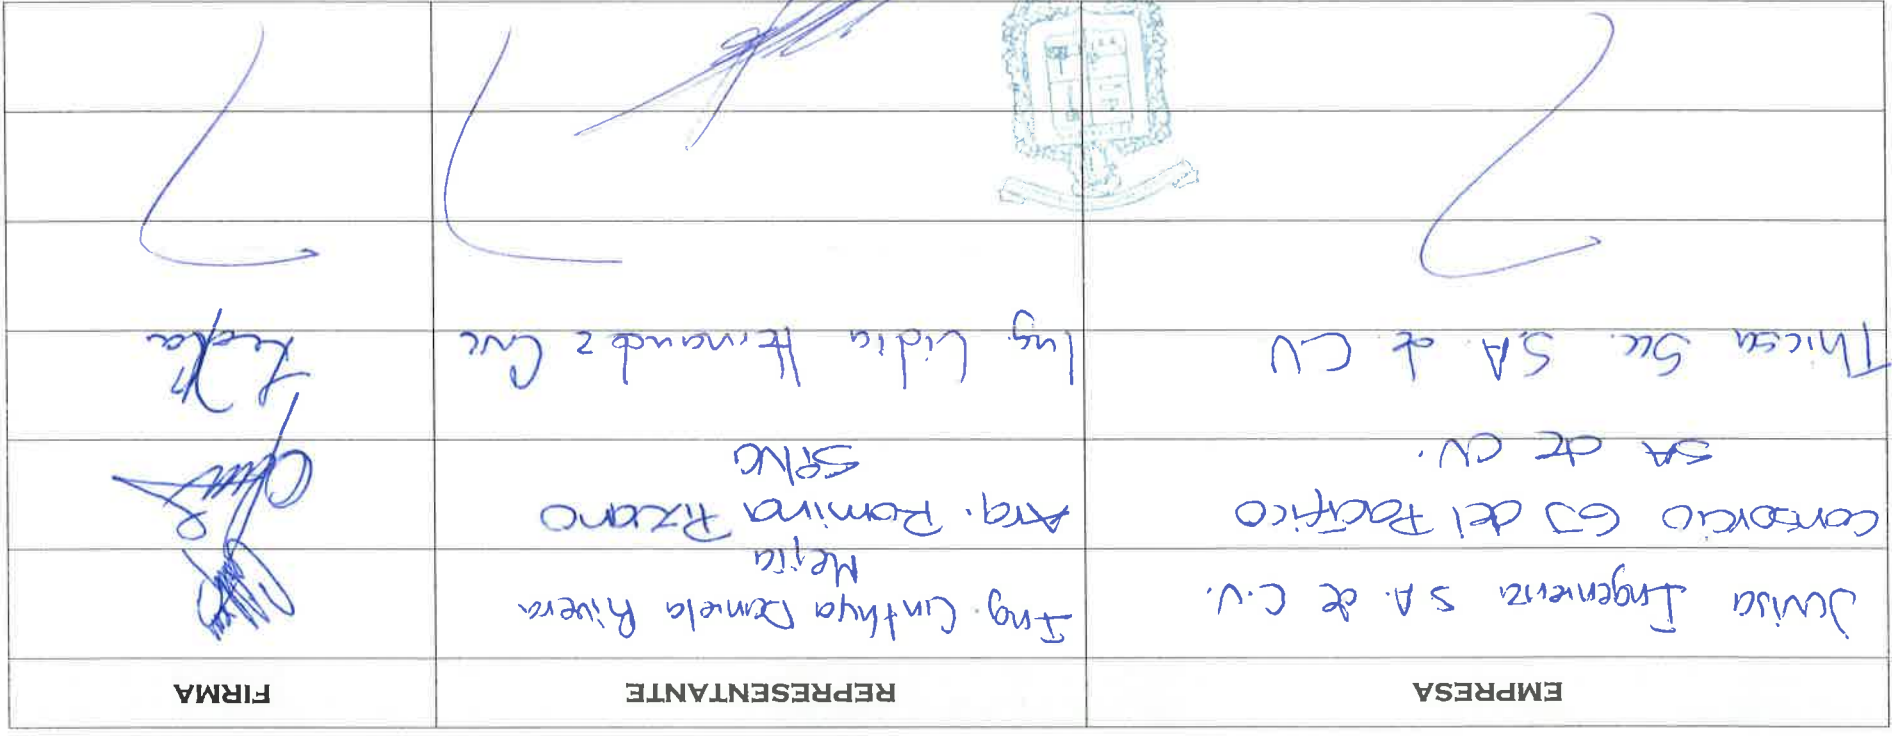 EMPRESA REPRESENTANTE FIRMA
Juvisa Ingenieria S.A. de C.V. Ing. Cinthya Daniela Rivera
Mejia
Consorcio GJ del Pacífico Arq. Romina Pizano
SA de CV.
S.A. de CV Ing. Lidia Hernandez
Lidia